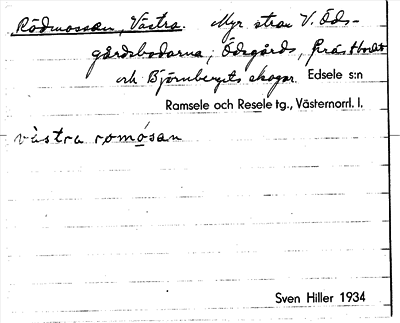 Rödmossan, Västra. Myr strax V. Eds-
gårdsbodarna; Ödsgårds,
och Björnbergets skogar. Edsele s:n
Ramsele och Resele tg., Västernorrl. l.
västra romósan
Sven Hiller 1934